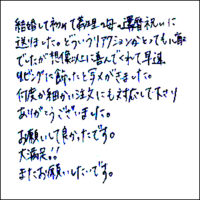 結婚して初めて義理の母の還暦祝いに
送りました。どういうリアクションがとっても心配
でしたが想像以上に喜んでくれて早速
リビングに飾ったとラメがきました。
何度か細かい注文にも対応して下さり
ありがとうございました。
お願いして良かったです。
大満足!!
またお願いしたいです。